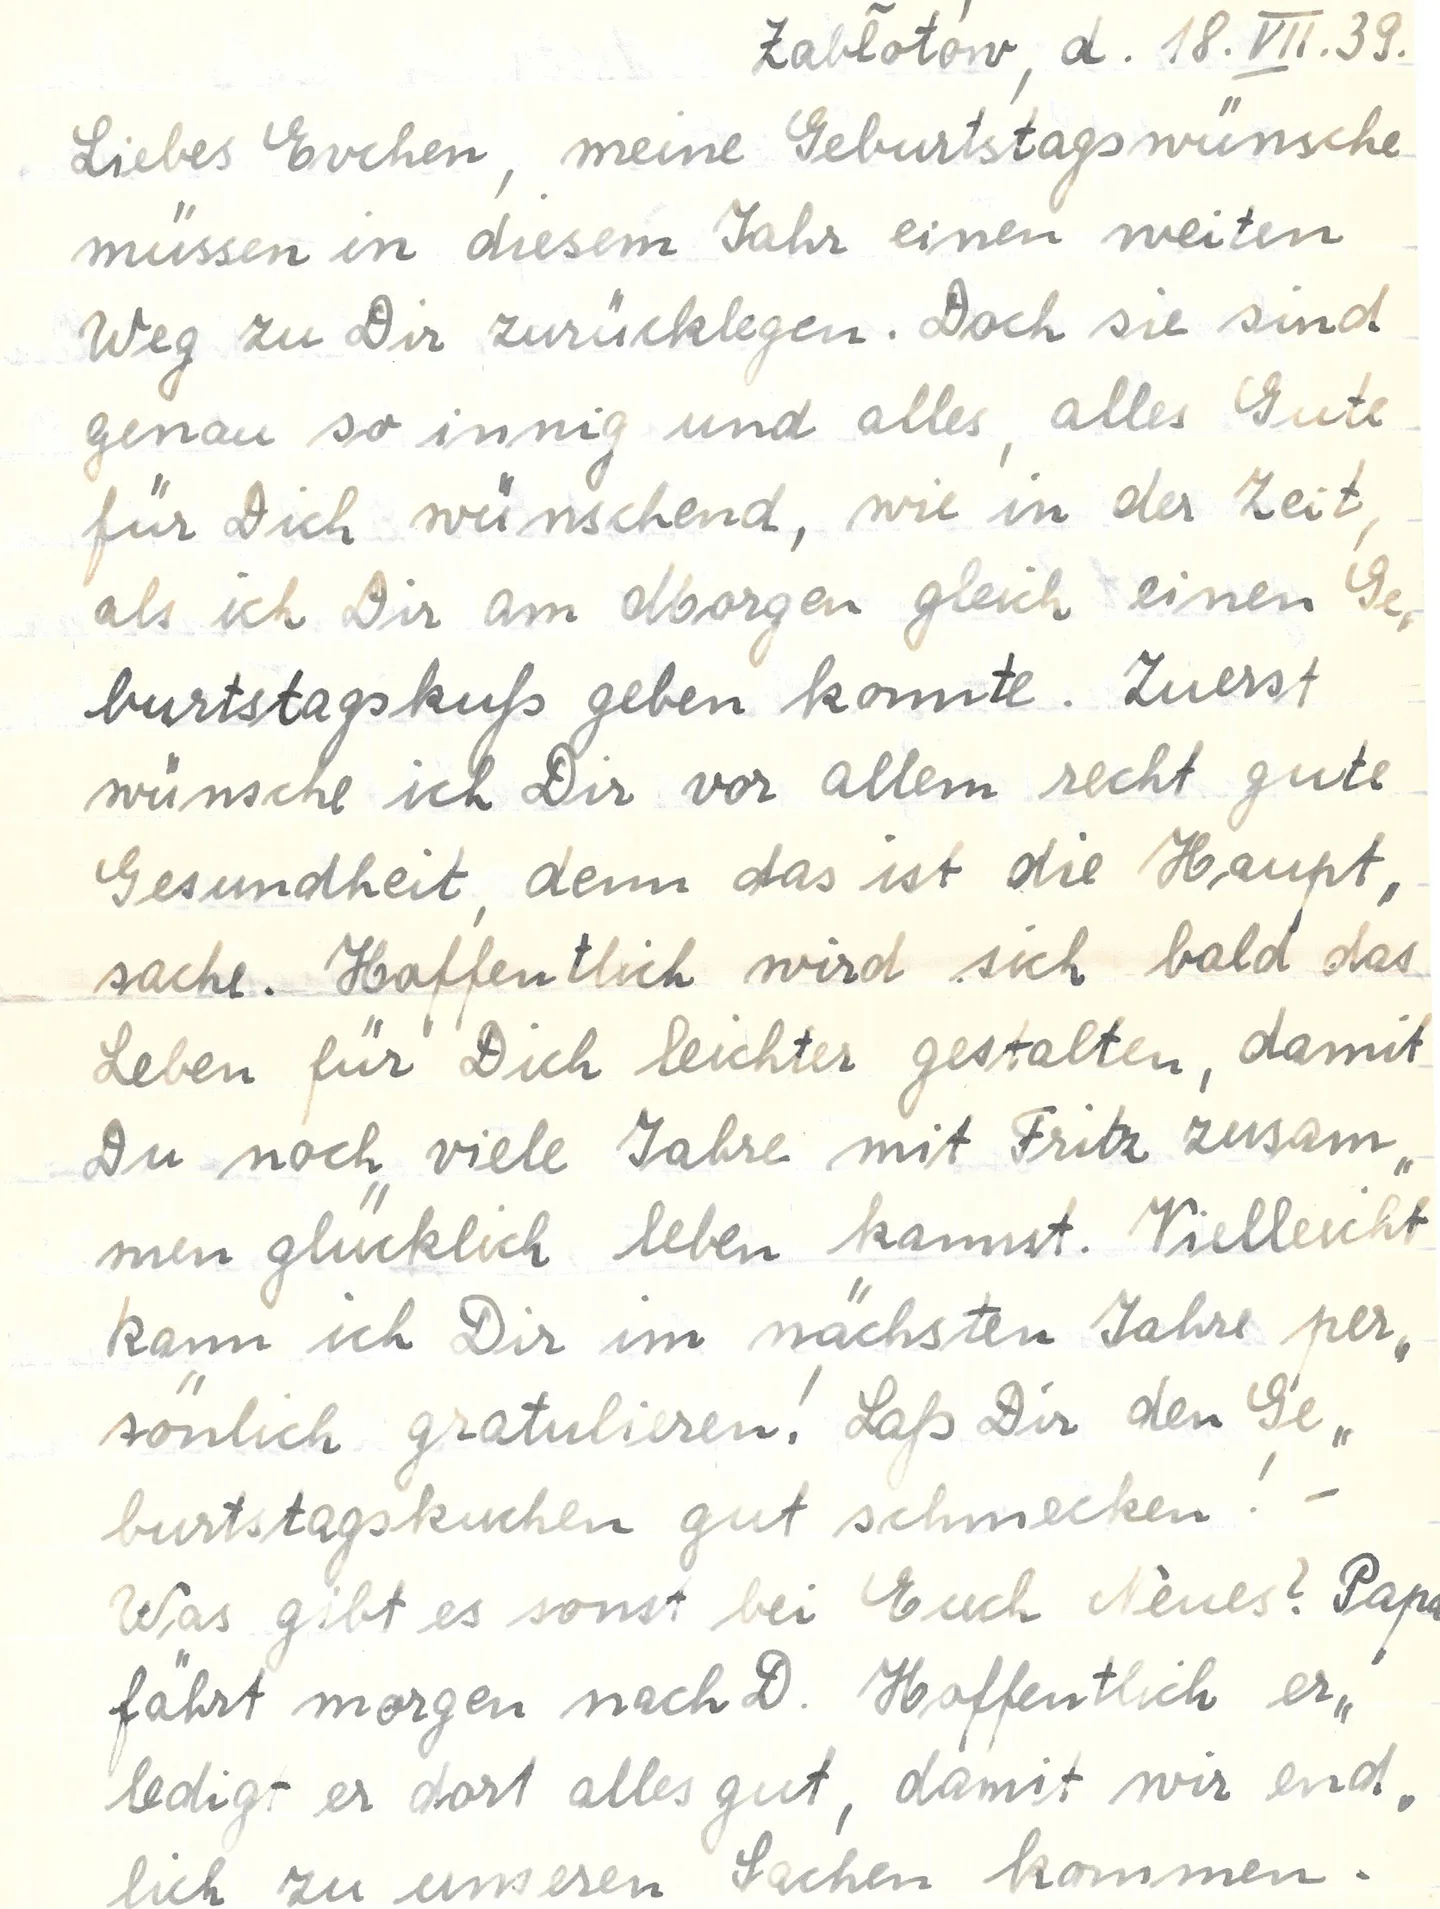 Zabłotów, d. 18. VII. 39.
Liebes Evchen, meine Geburtstagswünsche
müssen in diesem Jahr einen weiten
Weg zu Dir zurücklegen. Doch sie sind
genau so innig und alles, alles Gute
für Dich wünschend, wie in der Zeit,
als ich Dir am Morgen gleich einen Ge„
burtstagskuß geben konnte. Zuerst
wünsche ich Dir vor allem recht gute
Gesundheit, denn das ist die Haupt„
sache. Hoffentlich wird sich bald das
Leben für Dich leichter gestalten, damit
Du noch viele Jahre mit Fritz zusam„
men glücklich leben kannst. Vielleicht
kann ich Dir im nächsten Jahre per„
sönlich gratulieren! Laß Dir den Ge„
burtstagskuchen gut schmecken! –
Was gibt es sonst bei Euch Neues? Papa
fährt morgen nach D. Hoffentlich er„
ledigt er dort alles gut, damit wir end„
lich zu unseren Sachen kommen.